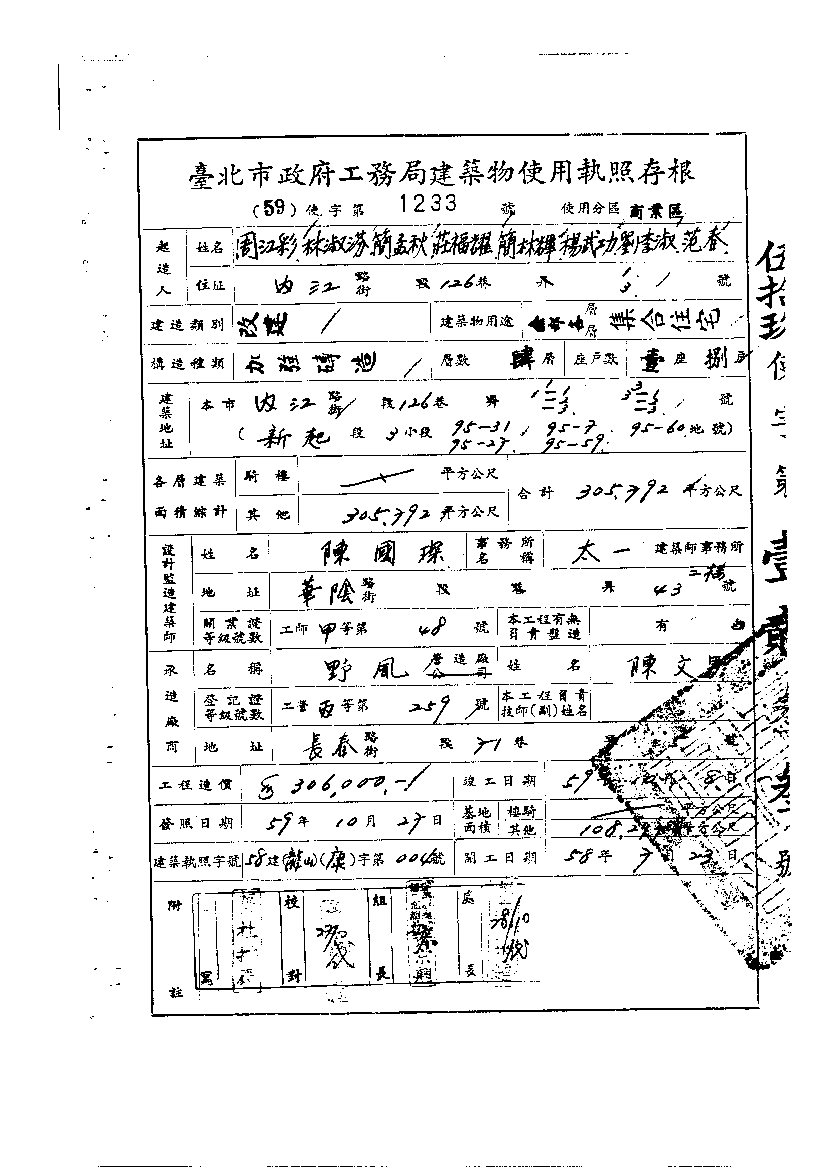 臺北市政府工務局建築物使用執照存根
(59) 使字第 1233 號 使用分區 商業區
起造人 姓名 周江彩 林淑芬 簡孟秋 莊福謎 簡林輝 楊武功 范春
住址 內江 路街 段 126 巷 弄 1 3 1 號
建造類別 改建 建築物用途 層層 集合住宅
構造種類 加強磚造 層數 肆層 座戶數 壹座 捌戶
建築地址 本市 內江 路街 段 126 巷 弄 號
(新起 段 3 小段 95-31 95-7 95-60 地號)
95-27 95-59
各層建築面積總計 騎樓 平方公尺 合計 305.792 平方公尺
其他 305.792 平方公尺
設計監造建築師 姓名 陳國琛 事務所名稱 太一 建築師事務所
地址 華陰 路街 段 巷 弄 43 二樓 號
開業證等級號數 工師 甲等第 48 號 本工程有無負責監造 有
承造廠商 名稱 野風 營造廠公司 姓名 陳文
登記證等級號數 工營 丙等第 259 號 本工程負責技師(副)姓名
地址 長春 路街 段 71 巷
工程造價 306,000.- 竣工日期 59年 月 8日
發照日期 59年 10月 27日 基地面積 樓騎 平方公尺
其他 108.2 平方公尺
建築執照字號 58建(龍山)(康)字第 004 號 開工日期 58年 7月 23日
附註 寫 校對 組長 處長
伍拾玖使字第壹貳 號